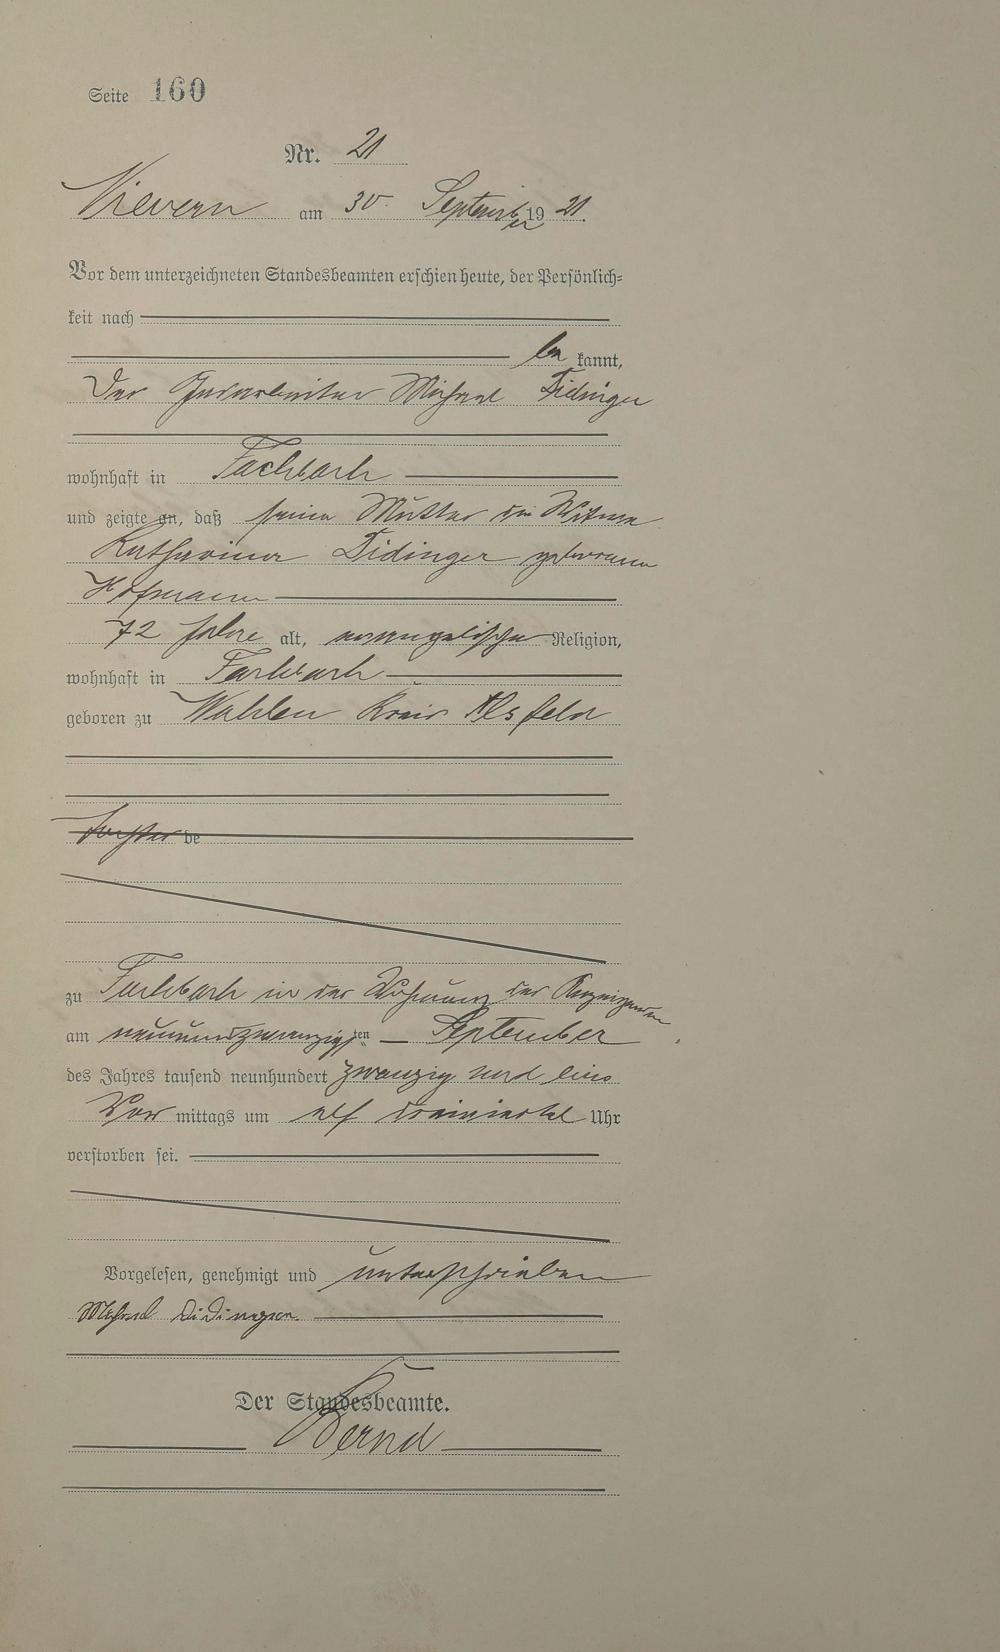 Seite 160
Nr. 21
Nievern am 30 September 1921.
Vor dem unterzeichneten Standesbeamten erschien heute, der Persönlich=
keit nach
be kannt,
Der Michael Didinger
wohnhaft in Fachbach
und zeigte an, daß seine Mutter die Witwe
Katharina Didinger geborene
Hofmann
72 Jahre alt, evangelische Religion,
wohnhaft in Fachbach
geboren zu Wahlen Kreis Alsfeld
Tochter de
zu Fachbach in der Wohnung des Anzeigenden
am neunundzwanzigsten September
des Jahres tausend neunhundert zwanzig und eins
Vor mittags um elf dreiviertel Uhr
verstorben sei.
Vorgelesen, genehmigt und unterschrieben
Michael Didinger.
Der Standesbeamte.
Bernd